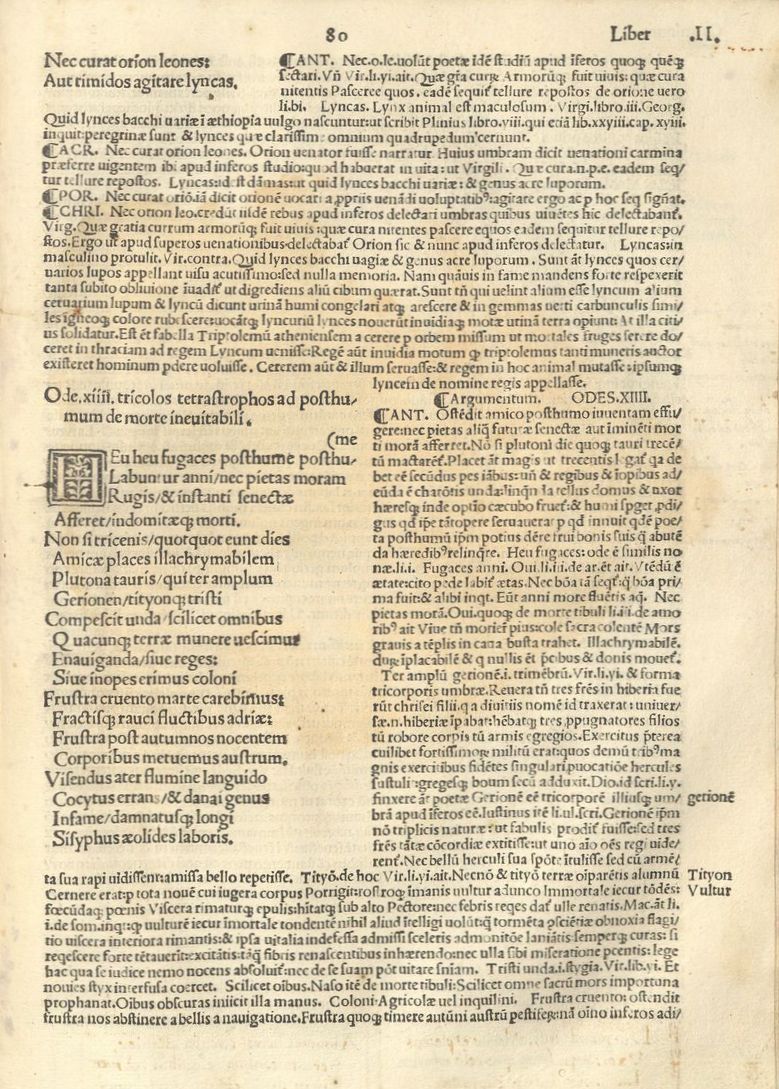 80 Liber .II.
Nec curat orion leones:
Aut timidos agitare lyncas.
¶CANT. Nec.o.le.uolūt poetæ idē studiū apud īferos quoq; quēq;
sectari. Vñ Vir.li.yi.ait. Quæ gr̄a curꝝ Armorūq; fuit uiuis: quæ cura
nitentis Pascere quos. eadē sequit̄ tellure repostos de orione uero
li.bi. Lyncas. Lynx animal est maculosum. Virgi.libro.iii.Georg.
Quid lynces bacchi uariæ ī æthiopia uulgo nascuntur: ut scribit Plinius libro.viii.qui etiā lib.xxviii.cap.xyiii.
inquit: peregrinæ sunt & lynces quæ clarissime omnium quadrupedum cernunt.
¶ACR. Nec curat orion leones. Orion uenator fuisse narratur. Huius umbram dicit uenationi carmina
præferre uigentem ibi apud inferos studio: quod habuerat in uita: ut Virgili. Quæ cura.n.p.e. eadem seq/
tur tellure repostos. Lyncas: id est dāmas: ut quid lynces bacchi uariæ: & genus acre luporum.
¶POR. Nec curat oriō.iā dicit orionē uocari a ꝓpriis uenādi uoluptatib⁹: agitare ergo ac p hoc seq signat̄.
¶CHRI. Nec orion leo. credūt iisdē rebus apud inferos delectari umbras quibus uiuētes hic delectabant̄.
Virg. Quæ gratia currum armorūq; fuit uiuis: quæ cura nitentes pascere equos eadem sequitur tellure repo/
stos. Ergo ut apud superos uenationibus delectabat̄ Orion sic & nunc apud inferos delectatur. Lyncas: in
masculino protulit. Vir. contra. Quid lynces bacchi uagiæ & genus acre luporum. Sunt āt lynces quos cer/
uarios lupos appellant uisu acutissimo: sed nulla memoria. Nam quāuis in fame mandens forte respexerit
tanta subito obliuione īuadit̄ ut digrediens aliū cibum quærat. Sunt tñ qui uelint alium esse lyncum alium
ceruarium lupum & lyncū dicunt urinā humi congelari atq; arescere & in gemmas uerti carbunculis simi/
les igneoq; colore rubescere: uocātq; lyncuriū lynces nouerūt inuidiaq; motæ urinā terra opiunt: At illa citi/
us solidatur. Est ēt fabella Triptolemū atheniensem a cerere p orbem missum ut mortales fruges serere do/
ceret in thraciam ad regem Lyncum uenisse: Regē aūt inuidia motum q triptolemus tanti muneris auctor
existeret hominum pdere uoluisse. Cererem aūt & illum seruasse: & regem in hoc animal mutasse: ipsumq;
lyncem de nomine regis appellasse.
Ode.xiiii. tricolos tetrastrophos ad posthu/
mum de morte ineuitabili.
(me
Eu heu fugaces posthume posthu/
Labuntur anni/nec pietas moram
Rugis/& instanti senectæ
Afferet/indomitæq; morti.
Non si tricenis/quotquot eunt dies
Amice places illachrymabilem
Plutona tauris/qui ter amplum
Gerionen/tityonq; tristi
Compescit unda/scilicet omnibus
Quacunq; terræ munere uescimur
Enauiganda/siue reges:
Siue inopes erimus coloni
Frustra cruento marte carebimus:
Fractisq; rauci fluctibus adriæ:
Frustra post autumnos nocentem
Corporibus metuemus austrum.
Visendus ater flumine languido
Cocytus errans/& danai genus
Infame/damnatusq; longi
Sisyphus æolides laboris.
¶Argumentum. ODES.XIIII.
¶CANT. Ostēdit amico posthumo iuuentam effu/
gere: nec pietas aliq̄ futuræ senectæ aut īminēti mor
ti morā afferret. Nō si plutoni die quoq; tauri trecē/
tū mactarēt̄. Placet āt magis ut trecentis legat̄ qa de
bet eē secūdus pes iābus: uñ & regibus & īopibus ad/
eūda ē charōtis unda: linqn̄da tellus domus & uxor
hæresq; inde optio cæcubo fruet̄: & humi spget ꝓdi/
gus qd ip̄e tātopere seruauerat p qd innuit qdē poe/
ta posthumū ip̄m potius dēre frui bonis suis q̄ abutē
da hæredib⁹ relinq̄re. Heu fugaces: ode ē similis no
næ.li.i. Fugaces anni. Oui.li.iii.de ar.ēt ait. Vtēdū ē
ætate: cito pede labit̄ ætas. Nec bōa tā seqt̄: q̄ bōa pri/
ma fuit: & alibi inqt. Eūt anni more fluētis aq. Nec
pietas morā. Oui. quoq; de morte tibuli li.iii.de amo
rib⁹ ait Viue tñ morier̄ pius: cole sacra colentē Mors
grauis a tēplis in caua busta trahet. Illachrymabilē.
duꝝ īplacabilē & q nullis ēt pcibus & donis mouet̄.
Ter amplū gerionē.i. trimēbrū. Vir.li.yi. & forma
tricorporis umbræ. Reuera tñ tres frēs in hiberia fue
rūt chrisei filii. q a diuitiis nomē id traxerat: uniuer/
sæ.n. hiberiæ īpabat: hēbatq; tres ꝓpugnatores filios
tū robore corpis tū armis egregios. Exercitus pterea
cuilibet fortissimoꝝ militū erat: quos demū trib⁹ ma
gnis exercitibus fidētes singulari puocatiōe hercules
sustuli: gregesq; boum secū adduxit. Dio.id scri.li.y.
finxere āt poetæ Gerionē eē tricorporē illiusq; um/
brā apud īferos eē. Iustinus itē li.ul. scri. Gerionē ip̄m
nō triplicis naturæ: ut fabulis prodit̄ fuisse: sed tres
frēs tātæ cōcordiæ extitisse: ut uno aīo oēs regi uide/
rent̄. Nec bellū herculi sua spōte ītulisse sed cū armē/
gerionē
ta sua rapi uidissent: amissa bello repetisse. Tityō. de hoc Vir.li.yi.ait. Necnō & tityō terræ oīparētis alumnū
Tityon
Cernere erat: p tota nouē cui iugera corpus Porrigit̄: rostroq; īmanis uultur adunco Immortale iecur tōdēs:
Vultur
fœcūdaq; pœnis Viscera rimaturq; epulis: hītatq; sub alto Pectore: nec febris reqes dat̄ ulle renatis. Mac.āt li.
i.de som. inqt: q uulturē iecur īmortale tondentē nihil aliud ītelligi uolūt: q̄ tormēta pscīetiæ obnoxia flagi/
tio uiscera interiora rimantis: & ipsa uitalia indefessa admissi sceleris admonitōe laniātis semperq; curas: si
reqescere forte tētauerīt: excitātis: tāq̄ fibris renascentibus inhærendo: nec ulla sibi miseratione pcentis: lege
hac qua se iudice nemo nocens absoluit̄: nec de se suam pōt uitare sniam. Tristi unda.i. stygia. Vir.lib.yi. Et
nouies styx interfusa coercet. Scilicet oībus. Naso itē de morte tibuli: Scilicet omne sacrū mors importuna
prophanat. Oibus obscuras iniicit illa manus. Coloni. Agricolæ uel inquilini. Frustra cruento: ostendit
frustra nos abstinere a bellis a nauigatione. Frustra quoq; timere autūni austrū pestiferū: nā oīno inferos adi/